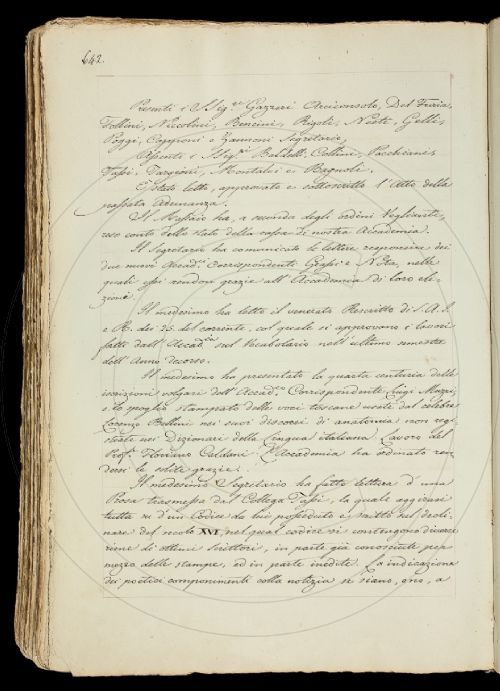 642.
Presenti i SSig.ri Gazzeri Arciconsolo, Del Furia,
Follini, Niccolini, Bencini, Rigoli, Nesti, Gelli,
Poggi, Capponi e Zannoni Segretario,
Assenti i SSig.ri Baldelli, Collini, Pacchiani,
Tassi, Targioni, Montalvi e Bagnoli.
È stato letto, approvato e sottoscritto l'Atto della
passata Adunanza.
Il Massaio ha, a seconda degli ordini Veglianti,
reso conto dello stato della cassa di nostra Accademia.
Il Segretario ha comunicato le lettere responsive dei
due nuovi Accad.ci Corrispondenti Grassi e Nota, nelle
quali essi rendon grazie all'Accademia di loro ele-
zione.
Il medesimo ha letto il venerato Rescritto di S. A. I.
e R. dei 25. del corrente, col quale si approvano i lavori
fatti dall'Accad.ia sul Vocabolario nell'ultimo semestre
dell'Anno decorso.
Il medesimo ha presentato la quarta centuria delle
iscrizioni volgari dell'Accad.co Corrispondente Luigi Muzzi,
e lo spoglio stampato delle voci toscane usate dal celebre
Lorenzo Bellini nei suoi discorsi di anatomia, non regi-
strate nei Dizionari della lingua italiana. Lavoro del
Prof. Floriano Caldani. L'Accademia ha ordinato ren-
dersi le solite grazie.
Il medesimo Segretario ha fatto lettura d'una
Prosa trasmessa dal Collega Tassi, la quale aggirasi
tutta su d'un Codice da lui posseduto e scritto nel decli-
nare del secolo XVI, nel qual codice si contengono diverse
rime di ottimi scrittori, in parte già conosciute per
mezzo delle stampe, ed in parte inedite. La indicazione
dei poetici componimenti colla notizia se siano, o no, a